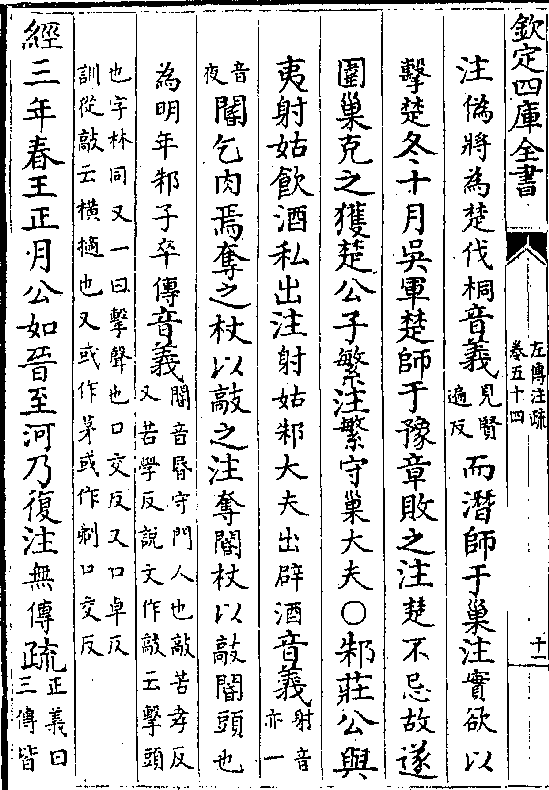 欽定四庫全書
左傳注疏
卷五十四
十二
注僞將為楚伐桐音義見賢遍反而潛師于巢注實欲以
擊楚冬十月吳軍楚師于豫章敗之注楚不忌故遂
圍巢克之獲楚公子繁注繁守巢大夫〇邾莊公與
夷射姑飲酒私出注射姑邾大夫出辟酒音義射音亦一
音夜閽乞肉焉奪之杖以敲之注奪閽杖以敲閽頭也
為明年邾子卒傳音義閽音昏守門人也敲苦孝反又苦學反說文作敲云擊頭
也字林同又一曰擊聲也口交反又口卓反
訓從敲云橫撾也又或作茅或作剢口交反
經三年春王正月公如晉至河乃復注無傳疏正義曰三傳皆